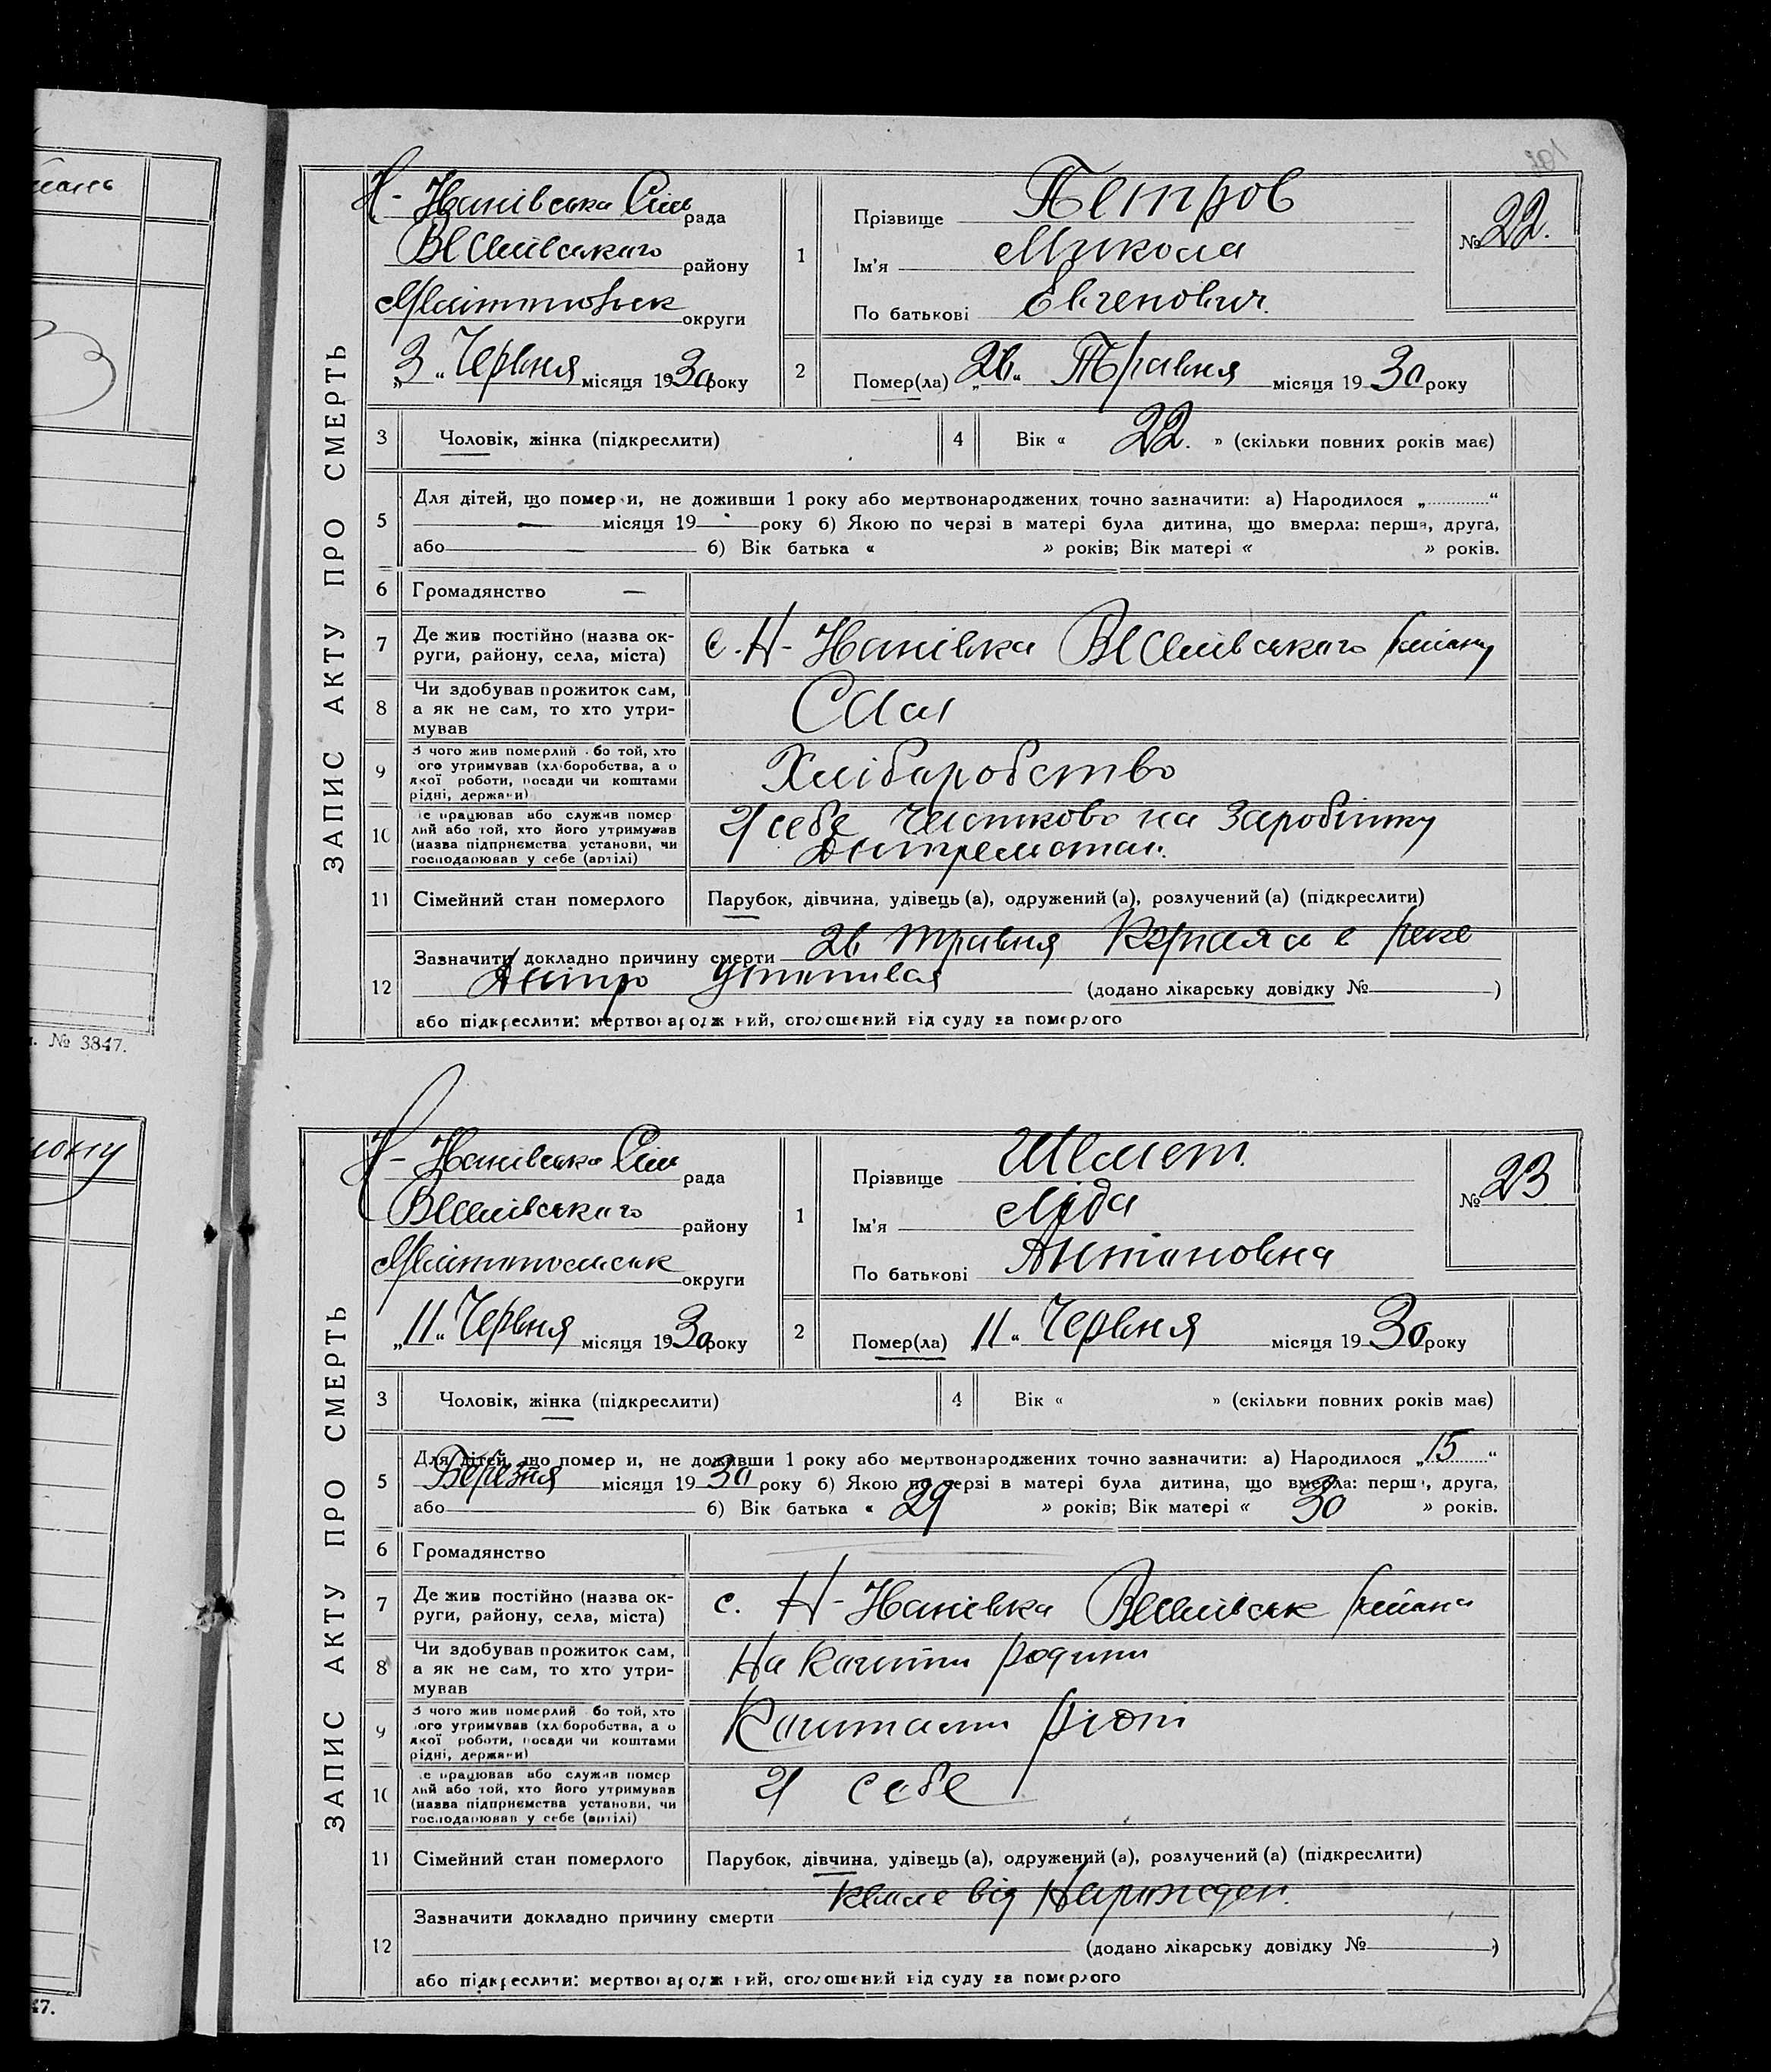 ЗАПИС АКТУ ПРО СМЕРТЬ
Сіль рада
району
округи
„3“ Червня місяця 1930 року
1
Прізвище Петров
Ім'я Микола
По батькові Евгенович
№ 22.
2
Помер(ла) „26“ Травня місяця 1930 року
3 Чоловік, жінка (підкреслити)
4 Вік « 22. » (скільки повних років має)
5
Для дітей, що померли, не доживши 1 року або мертвонароджених точно зазначити: а) Народилося „ “
— місяця 19 року б) Якою по черзі в матері була дитина, що вмерла: перша, друга,
або б) Вік батька « » років; Вік матері « » років.
6 Громадянство —
7 Де жив постійно (назва ок-
руги, району, села, міста)
с. Н- району
8 Чи здобував прожиток сам,
а як не сам, то хто утри-
мував
Сам
9 З чого жив померлий або той, хто
його утримував (хліборобства, а о
якої роботи, посади чи коштами
рідні, держави)
Хліборобство
10 Де працював або служив помер
лий або той, хто його утримував
(назва підприємства установи, чи
господарював у себе (артілі)
У себе Частково на Заробітку
11 Сімейний стан померлого
Парубок, дівчина, удівець (а), одружений (а), розлучений (а) (підкреслити)
12
Зазначити докладно причину смерти 26 травня в реке
Дніпро утопився (додано лікарську довідку № )
або підкреслити: мертвонароджений, оголошений від суду за померлого
. № 3847.
ЗАПИС АКТУ ПРО СМЕРТЬ
Сіль рада
району
округи
„11“ Червня місяця 1930 року
1
Прізвище Швмет.
Ім'я Ліда
По батькові Антоновна
№ 23
2
Помер(ла) „11“ Червня місяця 1930 року
3 Чоловік, жінка (підкреслити)
4 Вік « » (скільки повних років має)
5
Для дітей, що померли, не доживши 1 року або мертвонароджених точно зазначити: а) Народилося „15“
Березня місяця 1930 року б) Якою по черзі в матері була дитина, що вмерла: перша, друга,
або б) Вік батька « 29 » років; Вік матері « 30 » років.
6 Громадянство
7 Де жив постійно (назва ок-
руги, району, села, міста)
с. Н- района
8 Чи здобував прожиток сам,
а як не сам, то хто утри-
мував
На родини
9 З чого жив померлий або той, хто
його утримував (хліборобства, а о
якої роботи, посади чи коштами
рідні, держави)
Коштами рідні
10 Де працював або служив помер
лий або той, хто його утримував
(назва підприємства установи, чи
господарював у себе (артілі)
У себе
11 Сімейний стан померлого
Парубок, дівчина, удівець (а), одружений (а), розлучений (а) (підкреслити)
12
Зазначити докладно причину смерти від
(додано лікарську довідку № )
або підкреслити: мертвонароджений, оголошений від суду за померлого
47.